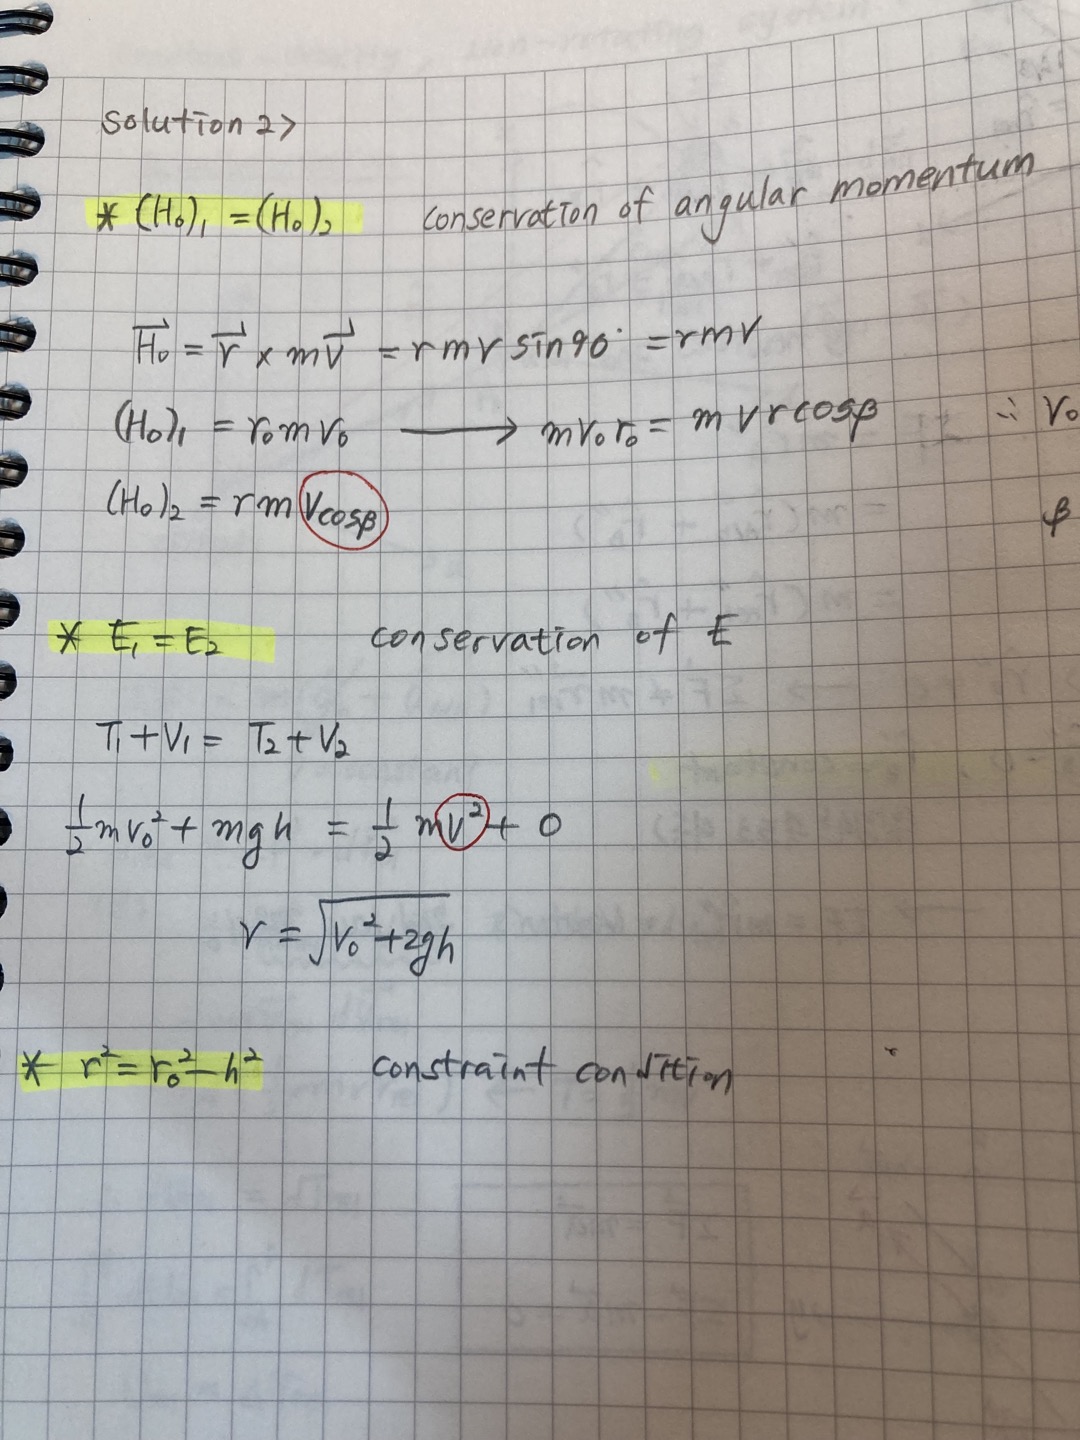 solution 2>
* (H₀)₁ = (H₀)₂ conservation of angular momentum
H₀⃗ = r⃗ × mv⃗ = rmv sin90° = rmv
(H₀)₁ = r₀mv₀ ⟶ mv₀r₀ = mvrcosβ ∴ v₀
(H₀)₂ = rm vcosβ β
* E₁ = E₂ conservation of E
T₁+V₁ = T₂+V₂
½mv₀² + mgh = ½mv² + 0
v = √(v₀²+2gh)
* r² = r₀² − h² constraint condition